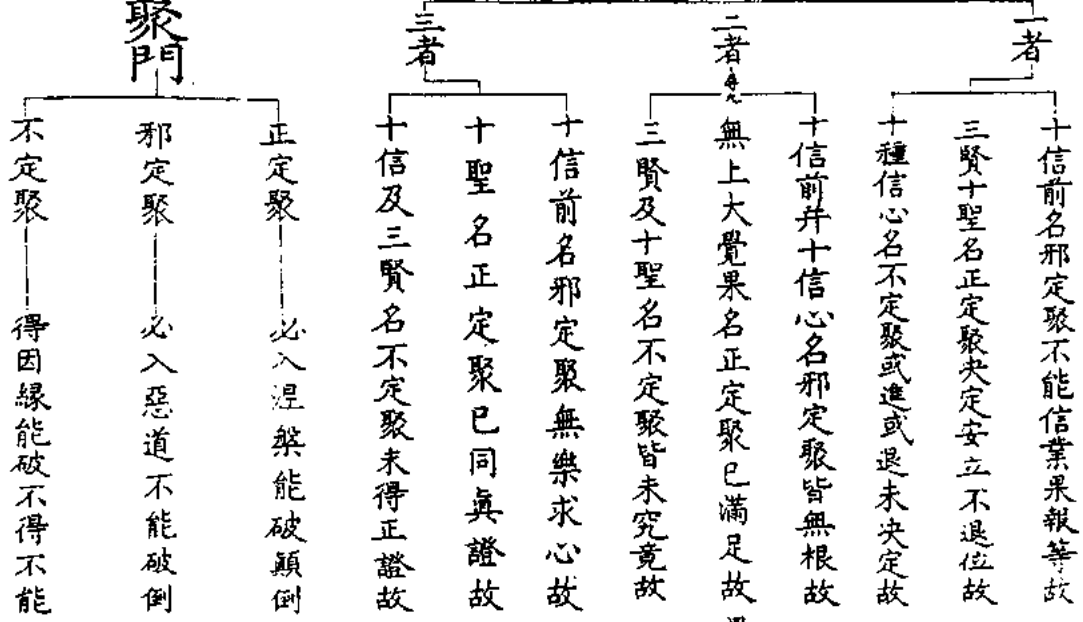 一者
十信前名邪定聚不能信業果報等故
三賢十聖名正定聚决定安立不退位故
十種信心名不定聚或進或退未决定故
二者
十信前并十信心名邪定聚皆無根故
無上大覺果名正定聚已滿足故
三賢及十聖名不定聚皆未究竟故
三者
十信前名邪定聚無樂求心故
十聖名正定聚已同眞證故
十信及三賢名不定聚未得正證故
聚門
正定聚
必入涅槃能破顛倒
邪定聚
必入惡道不能破倒
不定聚
得因緣能破不得不能